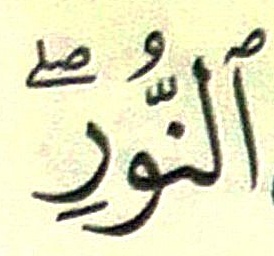 ٱلنُّورِ ۖ